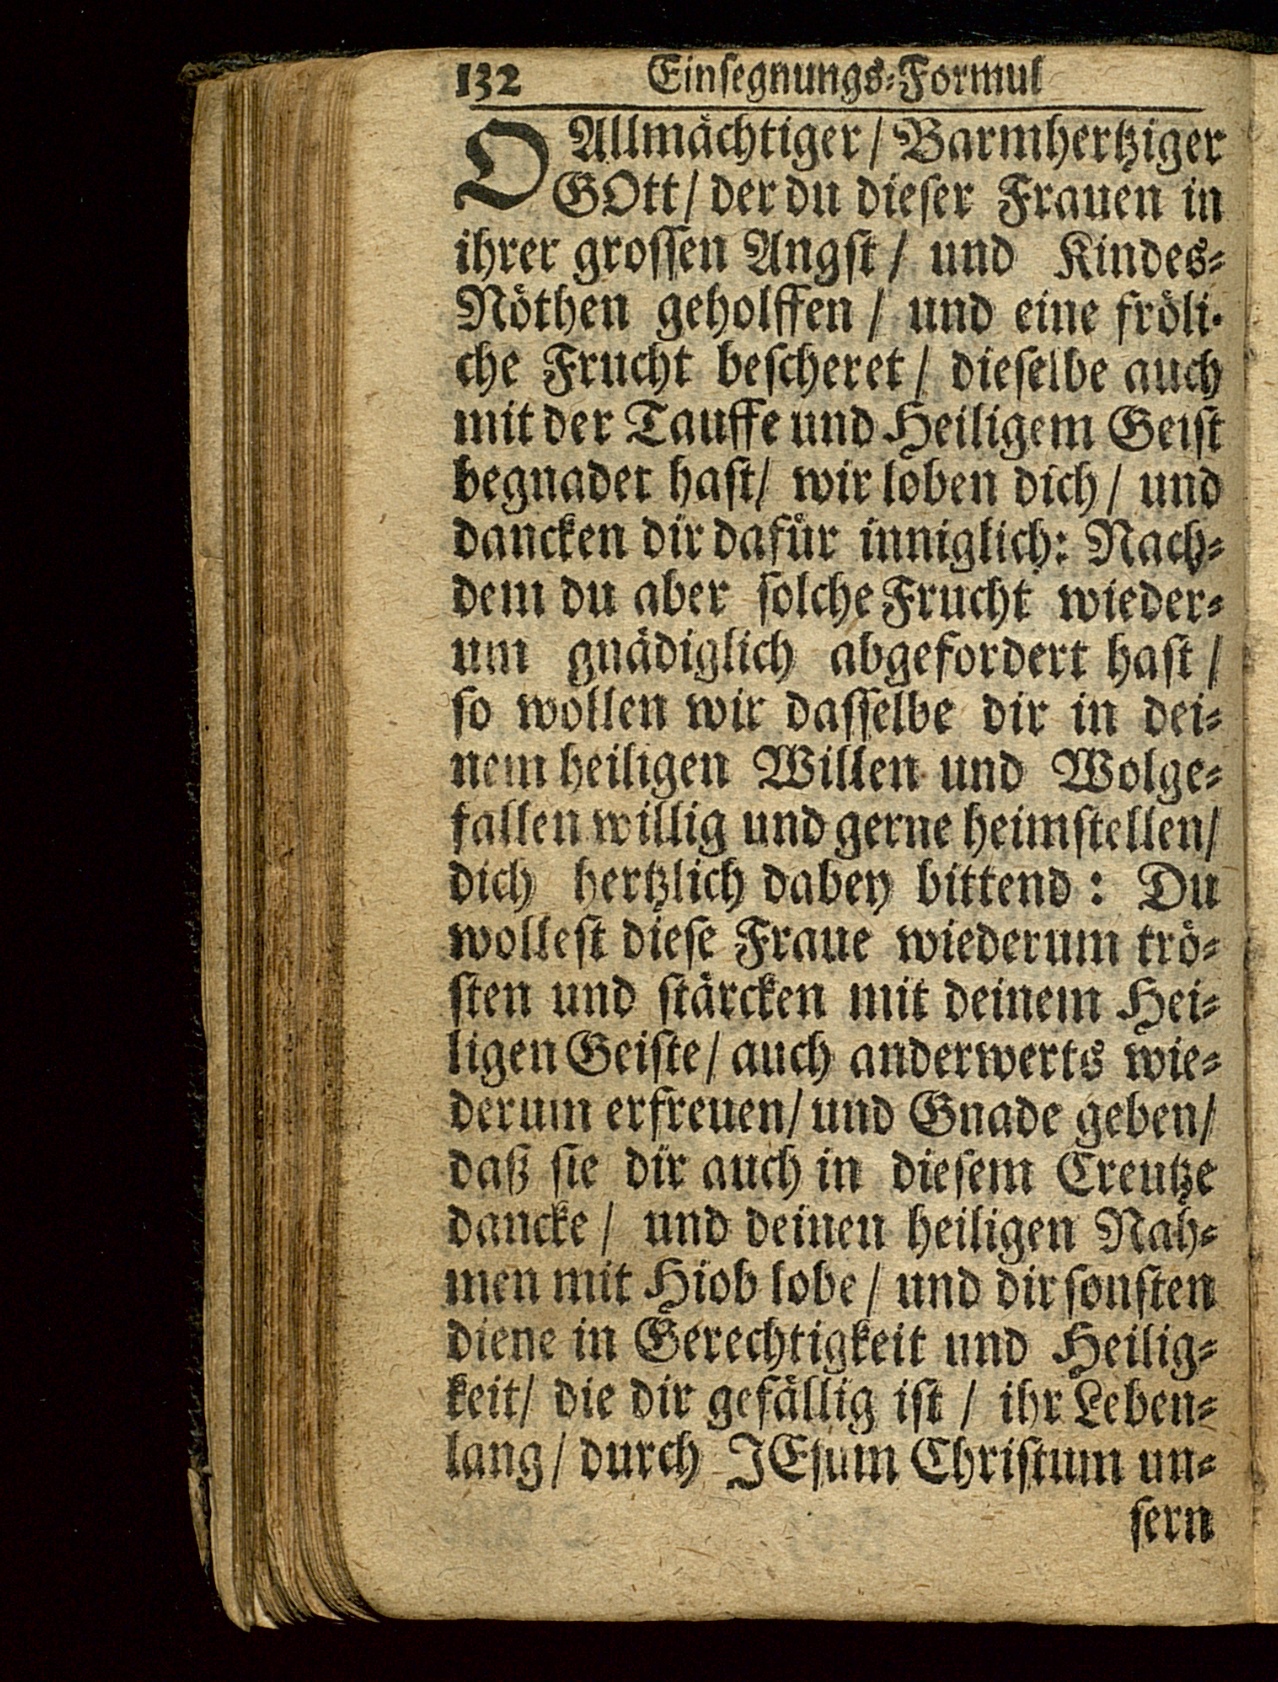 132 Einſegnungs-Formul
O Allmächtiger / Barmhertziger
GOtt / der du dieſer Frauen in
ihrer groſſen Angſt / und Kindes-
Nöthen geholffen / und eine fröli-
che Frucht beſcheret / dieſelbe auch
mit der Tauffe und Heiligem Geiſt
begnadet haſt / wir loben dich / und
dancken dir dafür inniglich: Nach-
dem du aber ſolche Frucht wieder-
um gnädiglich abgefordert haſt /
ſo wollen wir daſſelbe dir in dei-
nem heiligen Willen und Wolge-
fallen willig und gerne heimſtellen /
dich hertzlich dabey bittend: Du
wolleſt dieſe Fraue wiederum trö-
ſten und ſtärcken mit deinem Hei-
ligen Geiſte / auch anderwerts wie-
derum erfreuen / und Gnade geben /
daß ſie dir auch in dieſem Creutze
dancke / und deinen heiligen Nah-
men mit Hiob lobe / und dir ſonſten
diene in Gerechtigkeit und Heilig-
keit / die dir gefällig iſt / ihr Leben-
lang / durch JEſum Chriſtum un-
ſern